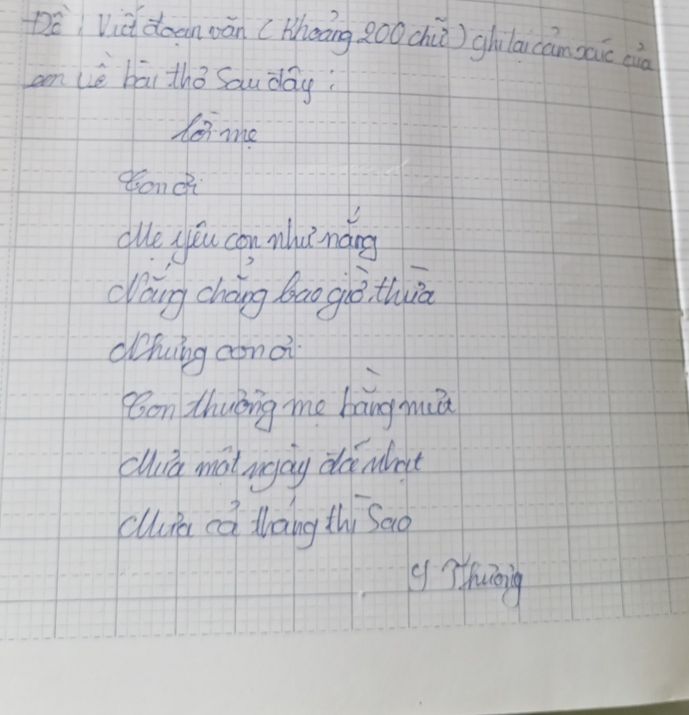 Đề: Viết đoạn văn (Khoảng 200 chữ) ghi lại cảm xúc của
em về bài thơ sau đây:
Lời mẹ
Con ơi
Mẹ yêu con như nắng
Nắng chẳng bao giờ thừa
Nhưng con ơi
Con thương mẹ bằng mưa
Mưa một ngày đã nhạt
Mưa cả tháng thì sao
Y Thương